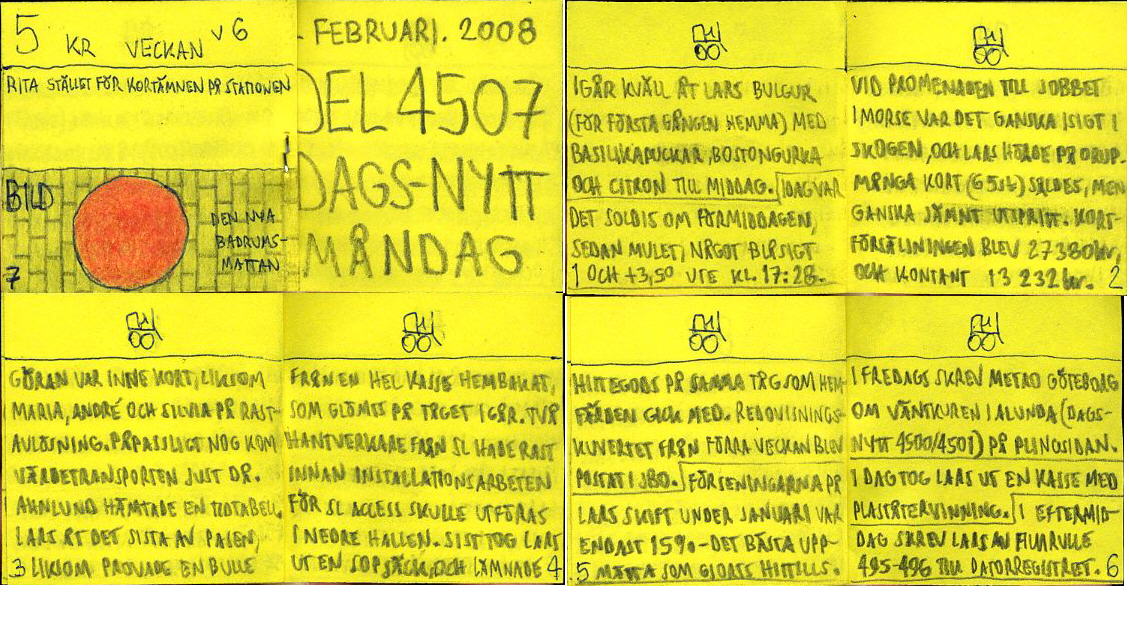 5 KR VECKAN V 6
RITA STÄLLET FÖR KORTÄMNEN PÅ STATIONEN
BILD
DEN NYA
BADRUMS-
MATTAN
7
FEBRUARI. 2008
DEL 4507
DAGS-NYTT
MÅNDAG
IGÅR KVÄLL ÅT LARS BULGUR
(FÖR FÖRSTA GÅNGEN HEMMA) MED
BASILIKAPUCKAR, BOSTONGURKA
OCH CITRON TILL MIDDAG. IDAG VAR
DET SOLDIS OM FÖRMIDDAGEN,
SEDAN MULET, NÅGOT BLÅSIGT
1 OCH +3,5° UTE KL. 17:28.
VID PROMENADEN TILL JOBBET
I MORSE VAR DET GANSKA ISIGT I
SKOGEN, OCH LARS HÖRDE PÅ DRUP.
MÅNGA KORT (65st) SÅLDES, MEN
GANSKA JÄMNT UTSPRITT. KORT-
FÖRSÄLJNINGEN BLEV 27380kr,
OCH KONTANT 13 232kr. 2
GÖRAN VAR INNE KORT, LIKSOM
MARIA, ANDRÉ OCH SILVIA PÅ RAST-
AVLÖSNING. PÅPASSLIGT NOG KOM
VÄRDETRANSPORTEN JUST DÅ.
AHNLUND HÄMTADE EN TIDTABELL.
LARS ÅT DET SISTA AV PAJEN,
3 LIKSOM PROVADE EN BULLE
FRÅN EN HEL KASSE HEMBAKAT,
SOM GLÖMTS PÅ TÅGET IGÅR. TVÅ
HANTVERKARE FRÅN SL HADE RAST
INNAN INSTALLATIONSARBETEN
FÖR SL ACCESS SKULLE UTFÖRAS
I NEDRE HALLEN. SIST TOG LARS
UT EN SOPSÄCK, OCH LÄMNADE 4
HITTEGODS PÅ SAMMA TÅG SOM HEM-
FÄRDEN GICK MED. REDOVISNINGS-
KUVERTET FRÅN FÖRRA VECKAN BLEV
POSTAT I JBO. FÖRSENINGARNA PÅ
LARS SKIFT UNDER JANUARI VAR
ENDAST 15% - DET BÄSTA UPP-
5 MÄTTA SOM GJORTS HITTILLS.
I FREDAGS SKREV METRO GÖTEBORG
OM VÄNTKUREN I ALUNDA (DAGS-
NYTT 4500/4501) PÅ PLINGSIDAN.
I DAG TOG LARS UT EN KASSE MED
PLASTÅTERVINNING. I EFTERMID-
DAG SKREV LARS AV FILMRULLE
495-496 TILL DATORREGISTRET. 6